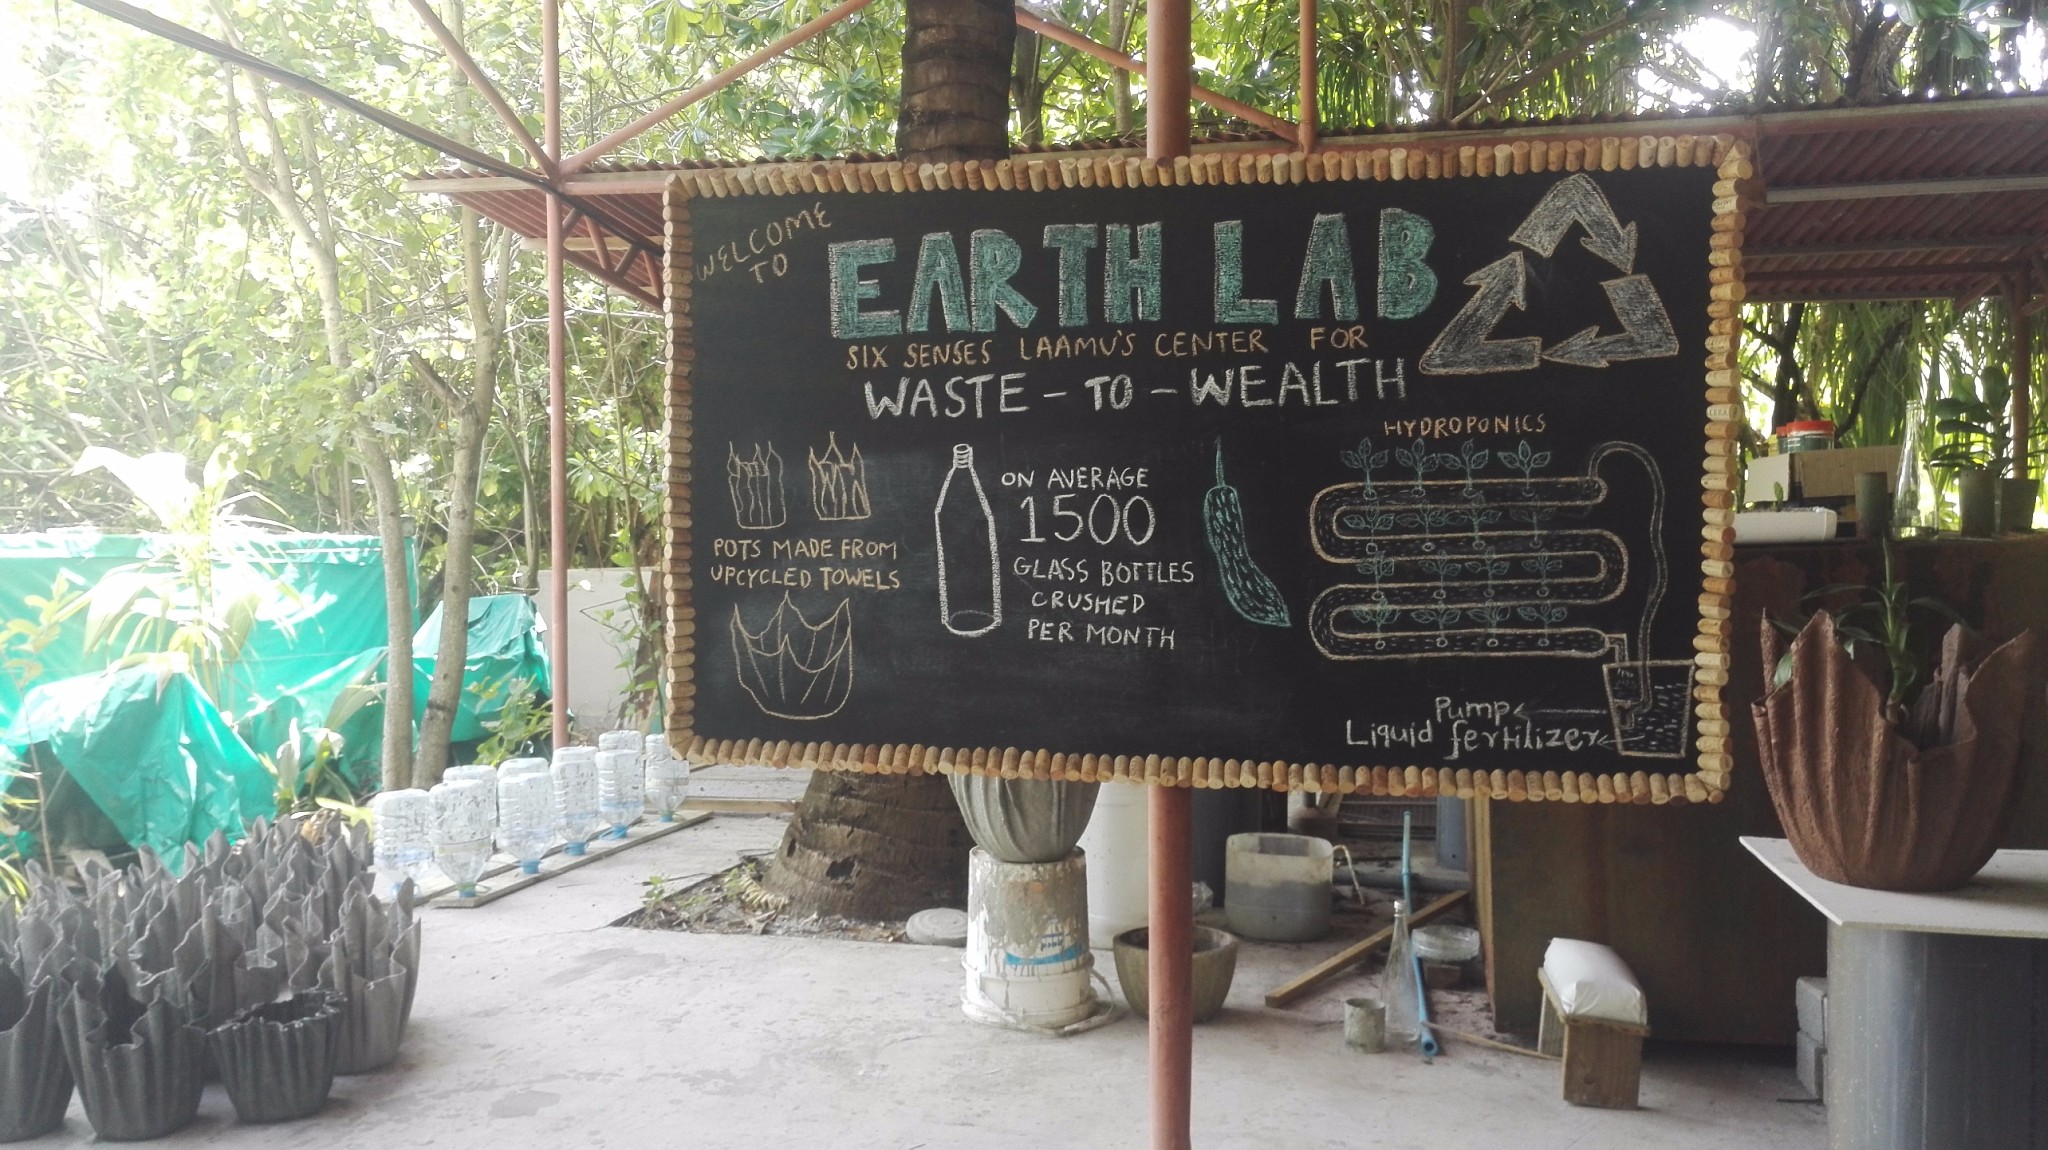 WELCOME
TO
EARTH LAB
SIX SENSES LAAMU'S CENTER FOR
WASTE-TO-WEALTH
POTS MADE FROM
UPCYCLED TOWELS
ON AVERAGE
1500
GLASS BOTTLES
CRUSHED
PER MONTH
HYDROPONICS
Pump
Liquid fertilizer